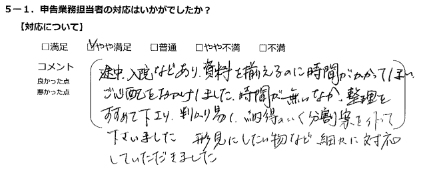 5－1．申告業務担当者の対応はいかがでしたか？
【対応について】
□満足 ☑やや満足 □普通 □やや不満 □不満
コメント
良かった点
悪かった点
途中、入院などあり、資料を揃えるのに時間がかかってしまい
ご心配をおかけしました。時間が無いなか、整理を
すすめて下さり、判かり易く、納得のいく分割案を作って
下さいました 形見にしたい物など細かに対応
していただきました